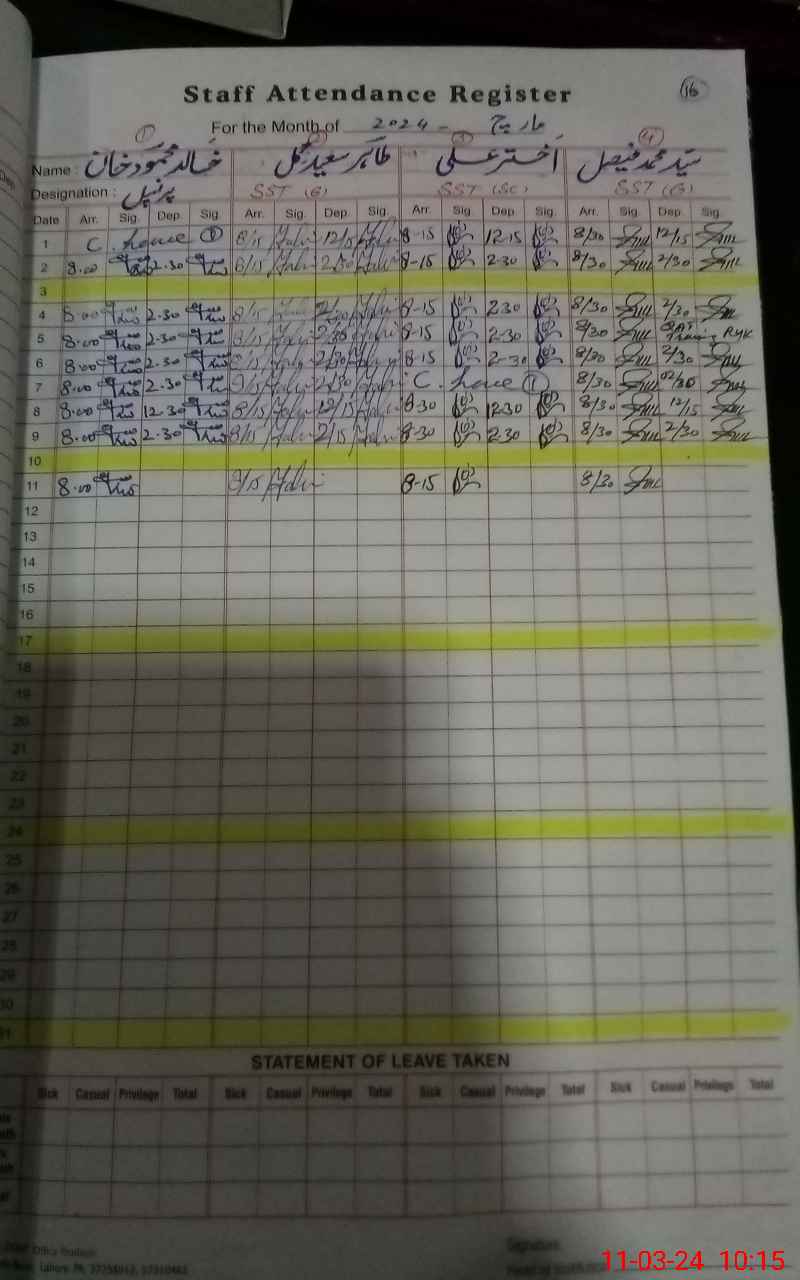 Staff Attendance Register
16
For the Month of 2024 - مارچ
1 3 4
Name : خالد محمود خان طاہر سعید گل اختر علی سید محمد فیصل
Designation : پرنسپل SST (G) SST (SC) SST (G)
Date Arr. Sig. Dep. Sig. Arr. Sig. Dep. Sig. Arr. Sig. Dep. Sig. Arr. Sig. Dep. Sig.
1 C. leave 1 8/15 12/15 8-15 12-15 8/30 12/15
2 8.00 2.30 8/15 2/30 8-15 2-30 8/30 2/30
3
4 8.00 2.30 8/15 2/30 8-15 2.30 8/30 2/30
5 8.00 2.30 8/15 2/30 8-15 2-30 8/30 Training RYK
6 8.00 2.30 8/15 2/30 8-15 2-30 8/30 2/30
7 8.00 2.30 8/15 2/30 C. leave 1 8/30 02/30
8 8.00 12.30 8/15 12/15 8-30 12.30 8/30 12/15
9 8.00 2.30 8/15 2/15 8-30 2.30 8/30 2/30
10
11 8.00 8/15 8-15 8/30
12
13
14
15
16
17
18
19
20
21
22
23
24
25
26
27
28
29
30
31
STATEMENT OF LEAVE TAKEN
Sick Casual Privilege Total Sick Casual Privilege Total Sick Casual Privilege Total Sick Casual Privilege Total
Signature
11-03-24 10:15